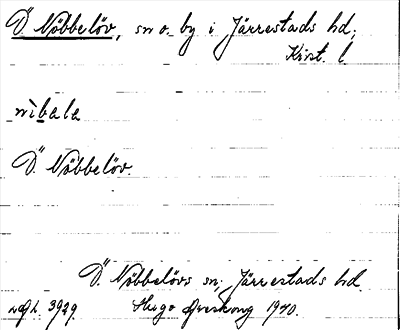 Ö. Nöbbelöv, sn o. by i Järrestads hd,
Krist. l.
nìbala
Ö. Nöbbelöv.
Ö. Nöbbelövs sn, Järrestads hd.
3929. Hugo Areskoug 1940.